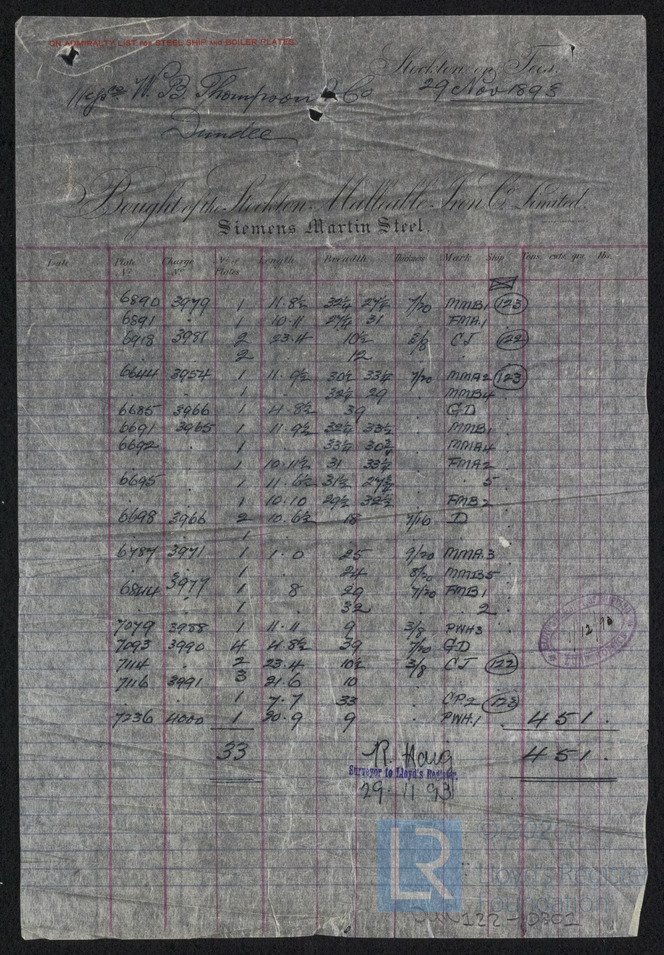 ON ADMIRALTY LIST FOR STEEL SHIP AND BOILER PLATES.
Stockton on Tees
Messrs W. B. Thompson & Co 29 Nov 1893
Dundee
Bought of the Stockton Malleable Iron Co Limited.
Siemens Martin Steel.
Date Plate No Charge No No of Plates Length Breadth Thickness Mark Ship Tons cwts qrs lbs
6890 3979 1 11.8½ 32½ 27½ 7/20 MMB1 123
6891 . 1 10.11 27¼ 31 . FMA1
6918 3981 2 23.4 10½ 3/8 CJ 122
. . 2 . 12 . .
6644 3954 1 11.9½ 30½ 33¼ 7/20 MMA2 123
. . 1 . 32½ 29 . MMB4
6685 3966 1 4.8½ 39 . GD
6691 3965 1 11.9½ 32½ 33½ . MMB1
6692 . 1 . 33¼ 30¾ . MMA4
1 10.11½ 31 33½ . FMA2
6695 . 1 11.6½ 31½ 27¾ . 5
. . 1 10.10 29½ 32½ . FMB2
6698 3966 2 10.6½ 18 7/16 D
. . 1 . . .
6787 3971 1 1.0 25 9/20 MMA3
. 1 24 8/20 MMB5
6844 3977 1 8 29 7/20 FMB1
. . 1 . 32 . 2
7079 3988 1 11.11 9 3/8 PWH3
7093 3990 4 4.8½ 39 7/20 GD
7114 . 2 23.4 10½ 3/8 CJ 122
7116 3991 3 21.6 10 . .
. 1 7.7 33 . CP2 123
7236 4000 1 20.9 9 . PWH1 4 5 1 .
33 4 5 1 .
R. Haig
Surveyor to Lloyd's Register.
29.11.93
LR
Lloyd's Register
Foundation
DUN122-0301